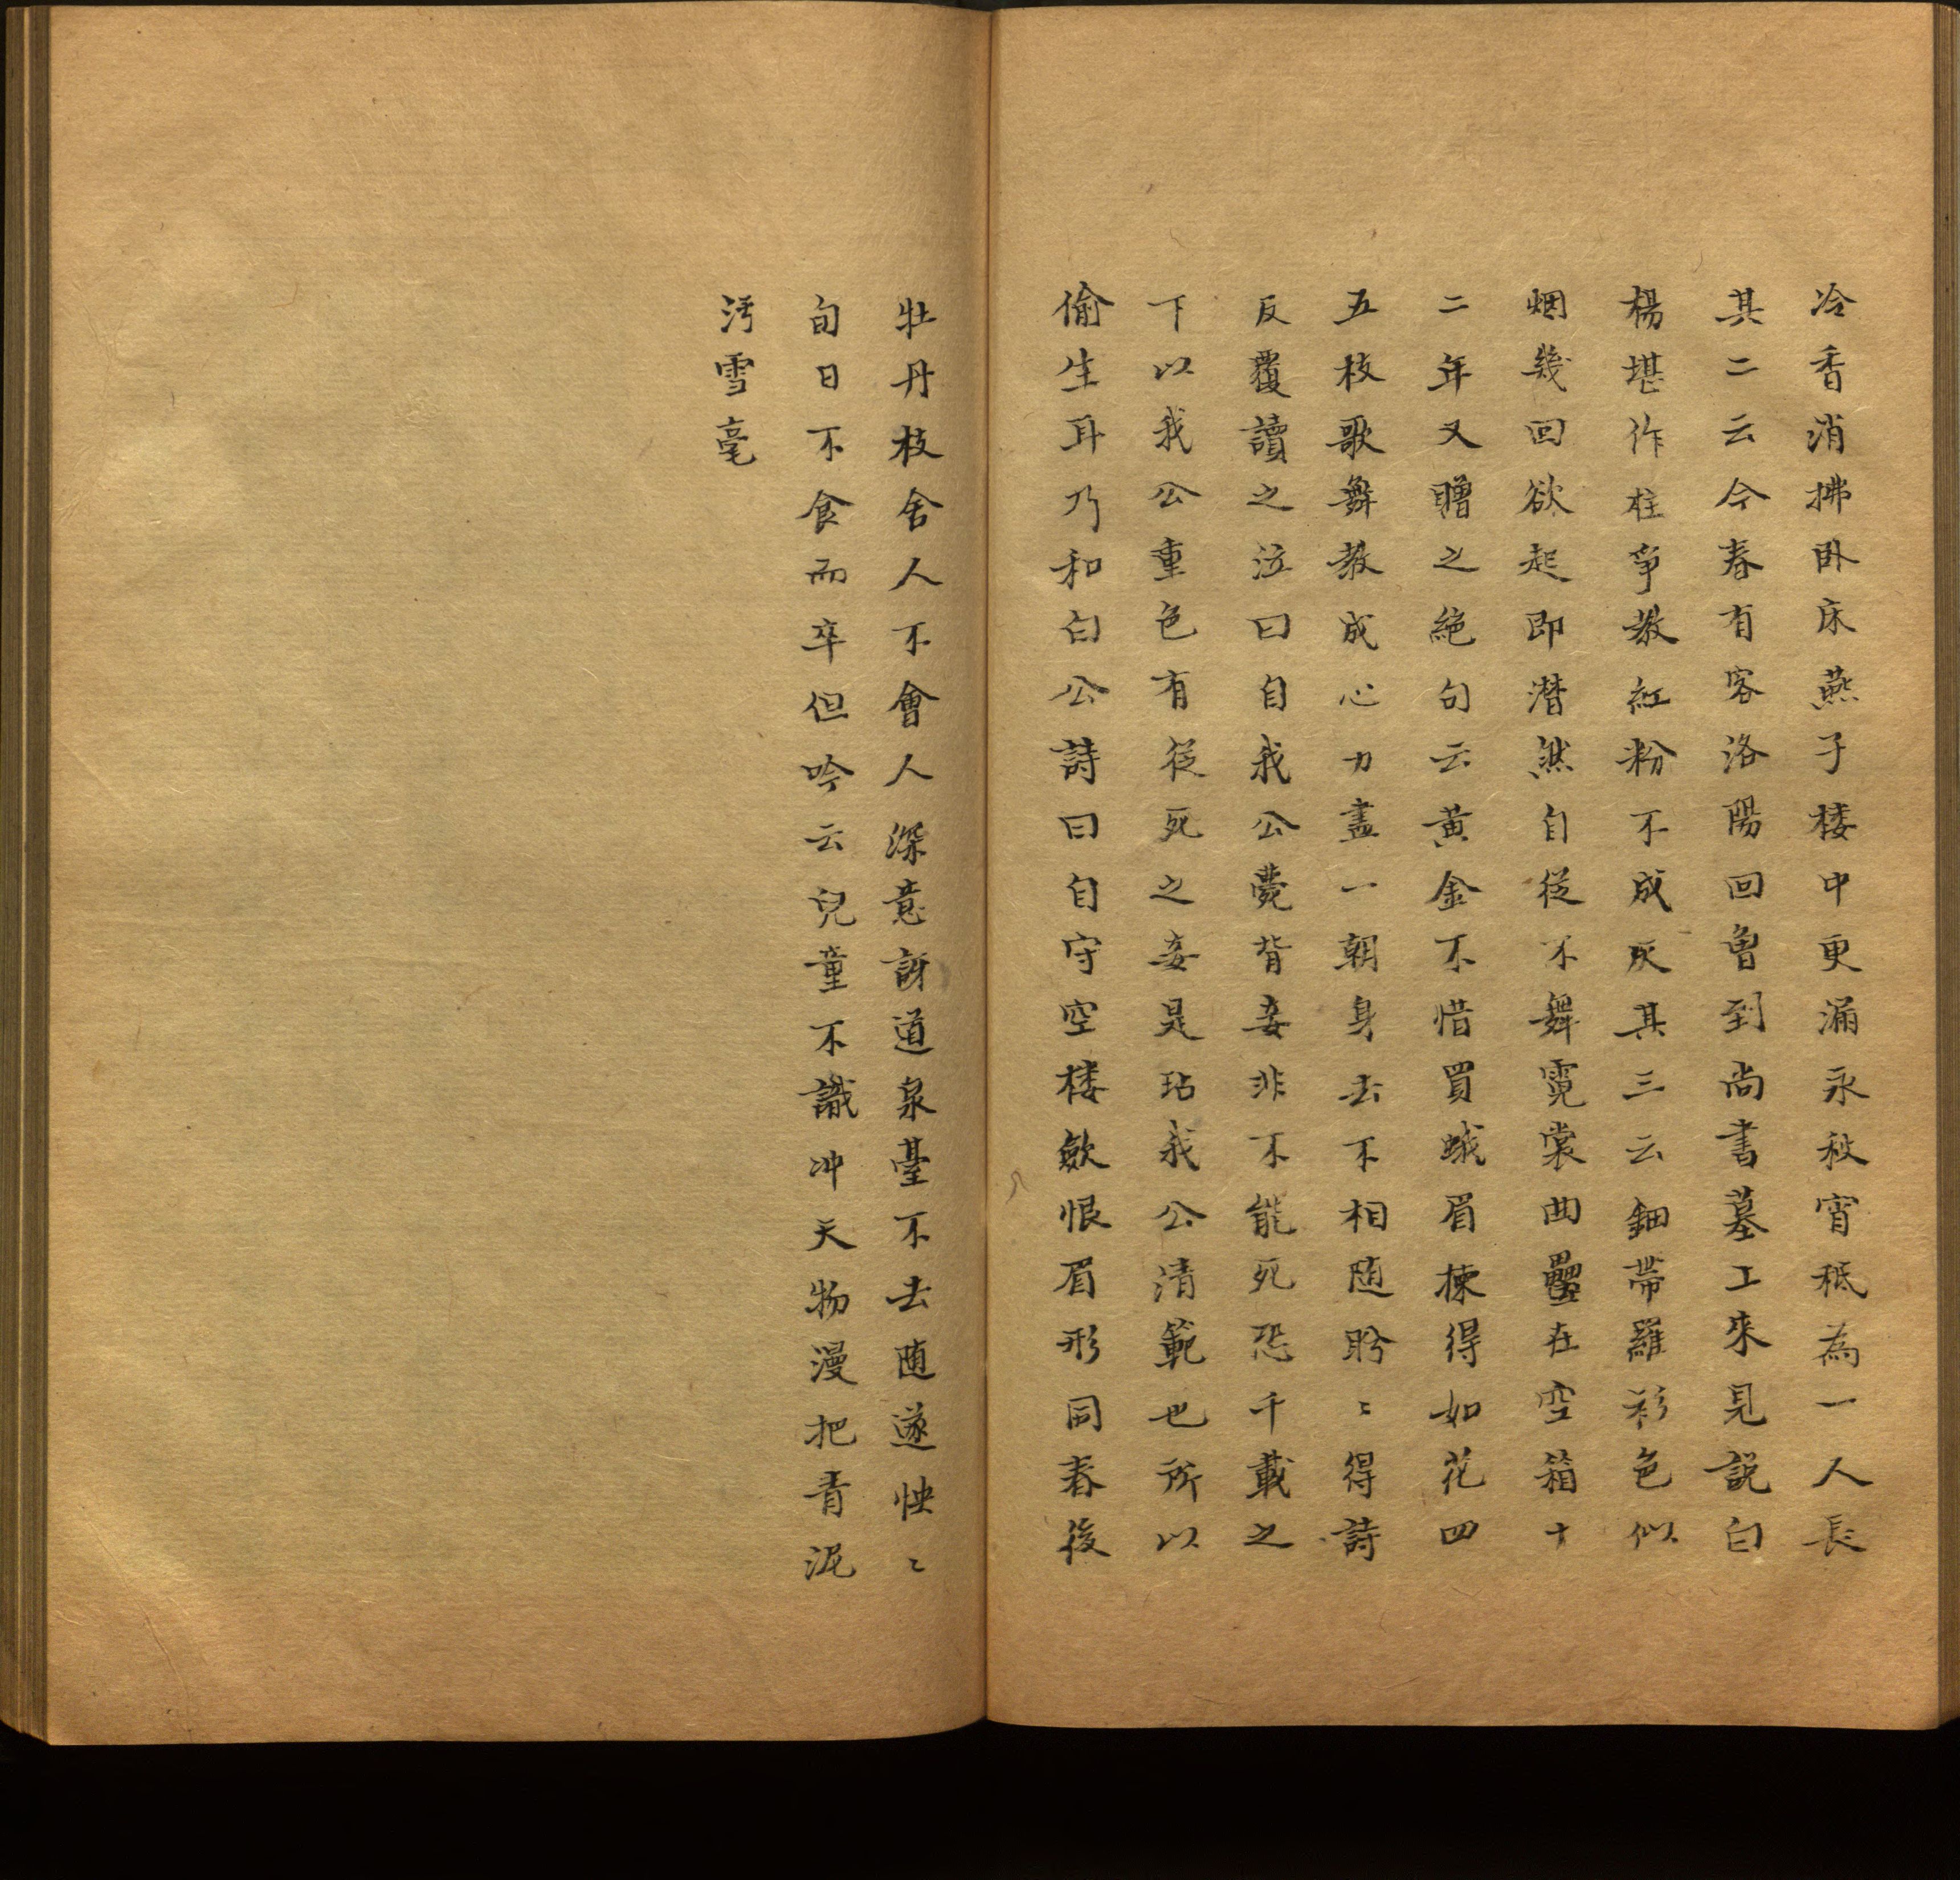 冷香消拂卧床燕子楼中更漏永秋宵秪為一人長
其二云今春有客洛陽回曽到尚書墓上來見説白
楊堪作柱爭教紅粉不成灰其三云鈿帶羅衫色似
烟幾回欲起即潜然自從不舞霓裳曲疊在空箱十
二年又贈之絶句云黃金不惜買蛾眉揀得如花四
五枝歌舞教成心力盡一朝身去不相随盻〻得詩
反覆讀之泣曰自我公薨背妾非不能死恐千載之
下以我公重色有從死之妾是玷我公清範也所以
偷生耳乃和白公詩曰自守空楼歛恨眉形同春後
牡丹枝舍人不會人深意訝道泉臺不去随遂怏〻
旬日不食而卒但吟云兒童不識冲天物漫把青泥
汚雪毫